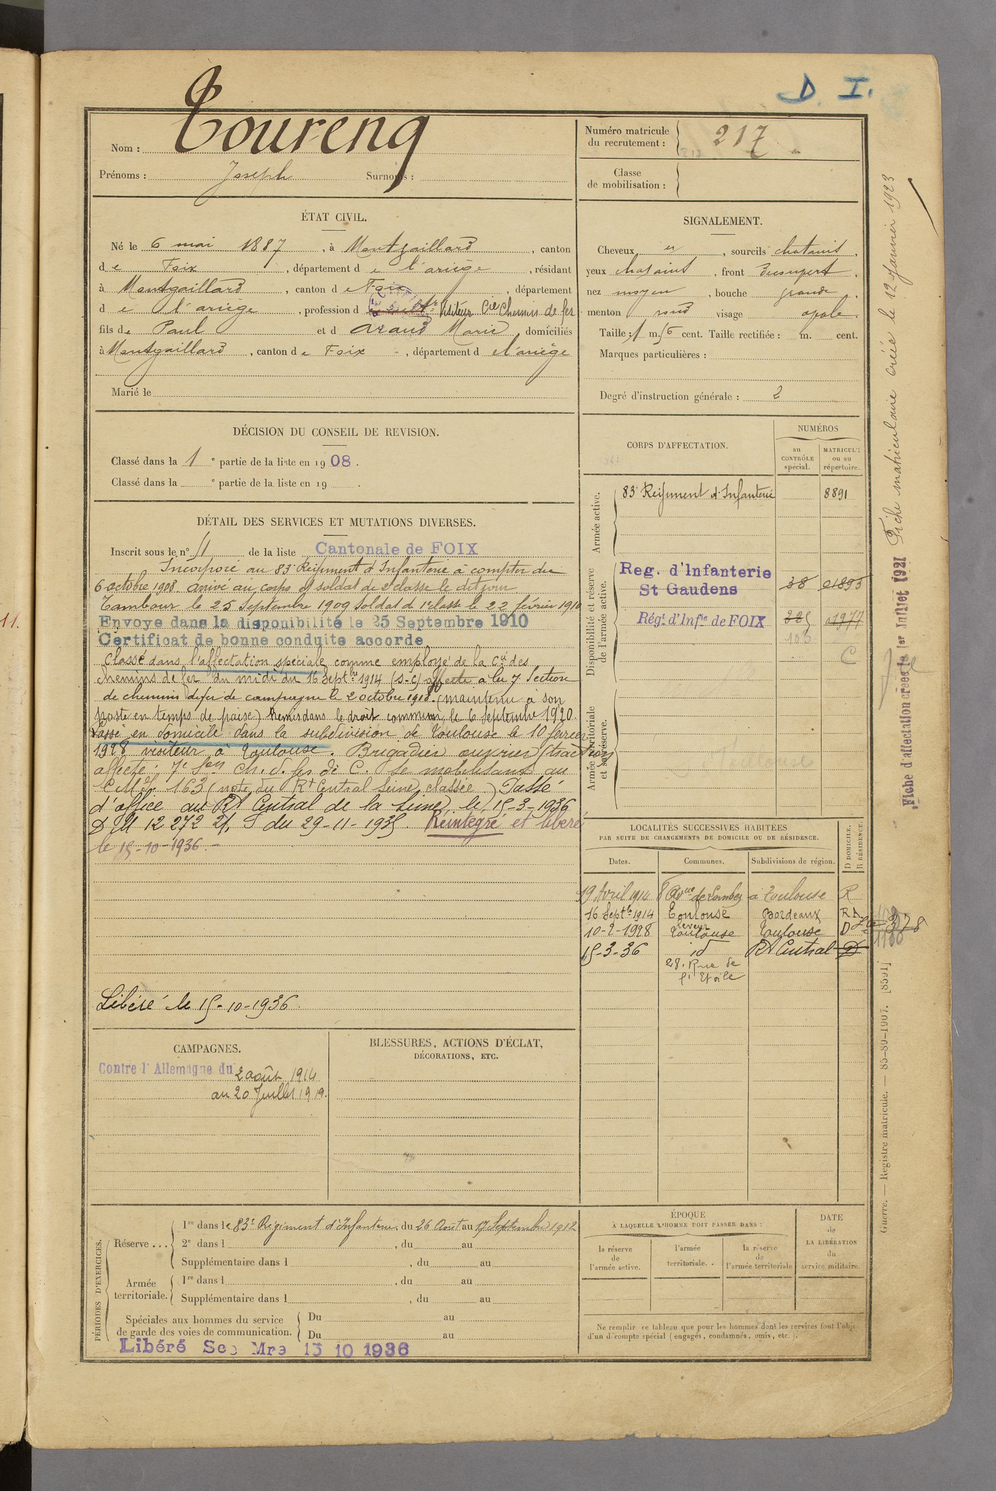 D. I.
Nom : Tourenq
Prénoms : Joseph Surnoms :
Numéro matricule du recrutement : 217
Classe de mobilisation :
ÉTAT CIVIL.
Né le 6 mai 1887, à Montgaillard, canton
de Foix, département de l'ariège, résidant
à Montgaillard, canton de Foix, département
de l'ariège, profession d Visiteur Cie Chemin de fer
fils de Paul et d Araud Marie, domiciliés
à Montgaillard, canton de Foix, département de l'ariège
Marié le
SIGNALEMENT.
Cheveux id, sourcils chatains,
yeux chatains, front découvert,
nez moyen, bouche grande,
menton rond visage ovale.
Taille : 1 m. cent. Taille rectifiée : m. cent.
Marques particulières :
Degré d'instruction générale : 2
DÉCISION DU CONSEIL DE REVISION.
Classé dans la 1e partie de la liste en 1908.
Classé dans la e partie de la liste en 19
DÉTAIL DES SERVICES ET MUTATIONS DIVERSES.
Inscrit sous le n° 11 de la liste Cantonale de FOIX
Incorporé au 83e Régiment d'Infanterie à compter du
6 octobre 1908. Arrivé au corps et soldat de 2e classe le dit jour
Tambour le 25 Septembre 1909 Soldat de 1e classe le 22 février 1910
Envoyé dans la disponibilité le 25 Septembre 1910
Certificat de bonne conduite accordé
Classé dans l'affectation spéciale comme employé de la Cie des
chemins de fer du midi du 16 Septbre 1914 (S.C) affecté à la 7e Section
de chemins de fer de campagne le 2 octobre 1918 (maintenu à son
poste en temps de paise) Remis dans le droit commun le 6 Septembre 1920
Passé en domicile dans la subdivision de Toulouse le 10 février
1928 visiteur à Toulouse. Brigadier ouvrier (traction
affecté : 7e Son Ch. d. fer de C. se mobilisant au
163 (note du Rt Central Seine, classée) Passé
d'office au Rt Central de la Seine) le 15-3-1936
D M 12 272 du 29-11-1935. Réintégré et libéré
le 15-10-1936.-
Libéré le 15-10-1936.
CORPS D'AFFECTATION.
NUMÉROS
au CONTRÔLE spécial.
MATRICULE ou au répertoire.
Armée active.
83e Régiment d'Infanterie 8891
Disponibilité et réserve de l'armée active.
Reg. d'Infanterie
St Gaudens 38 01893
Rég. d'Infie de FOIX 01977
C
Armée territoriale et sa réserve.
LOCALITÉS SUCCESSIVES HABITÉES
PAR SUITE DE CHANGEMENTS DE DOMICILE OU DE RÉSIDENCE.
Dates. Communes. Subdivisions de région. D DOMICILE. R RÉSIDENCE.
19 Avril 1914 8 Avue de Lombez à Toulouse R
16 Septbre 1914 Toulouse Bordeaux
10-2-1928 Toulouse Toulouse D
15-3-36 id Rt Central D
28. Rue de
l'Etoile
CAMPAGNES.
Contre l'Allemagne du 2 août 1914
au 20 Juillet 1919.
BLESSURES, ACTIONS D'ÉCLAT,
DÉCORATIONS, ETC.
PÉRIODES D'EXERCICES.
Réserve ...
1re dans le 83e Régiment d'Infanterie, du 26 Août au 17 Septembre 1912
2e dans l , du au
Supplémentaire dans l , du au
Armée territoriale.
1re dans l , du au
Supplémentaire dans l , du au
Spéciales aux hommes du service
de garde des voies de communication.
Du au
Du au
Libéré Sce Mre 15 10 1936
ÉPOQUE
À LAQUELLE L'HOMME DOIT PASSER DANS :
la réserve de l'armée active.
l'armée territoriale.
la réserve de l'armée territoriale
DATE de LA LIBÉRATION du service militaire.
Ne remplir ce tableau que pour les hommes dont les services font l'objet
d'un décompte spécial (engagés, condamnés, omis, etc.).
Fiche matriculaire créée le 12 janvier 1923
Fiche d'affectation créée le 1er Juillet 1921
Guerre. — Registre matricule. — 85-89-1907. [8501]
11.